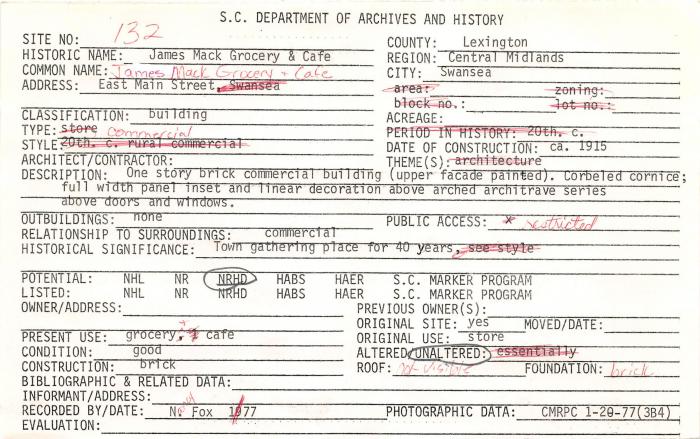 S.C. DEPARTMENT OF ARCHIVES AND HISTORY
SITE NO: 132
COUNTY: Lexington
HISTORIC NAME: James Mack Grocery & Cafe
REGION: Central Midlands
COMMON NAME: James Mack Grocery + Cafe
CITY: Swansea
ADDRESS: East Main Street, Swansea
area: zoning:
block no.: lot no.:
CLASSIFICATION: building
ACREAGE:
TYPE: store commercial
PERIOD IN HISTORY: 20th. c.
STYLE: 20th. c. rural commercial
DATE OF CONSTRUCTION: ca. 1915
ARCHITECT/CONTRACTOR:
THEME(S): architecture
DESCRIPTION: One story brick commercial building (upper facade painted). Corbeled cornice;
full width panel inset and linear decoration above arched architrave series
above doors and windows.
OUTBUILDINGS: none
PUBLIC ACCESS: * restricted
RELATIONSHIP TO SURROUNDINGS: commercial
HISTORICAL SIGNIFICANCE: Town gathering place for 40 years, see style
POTENTIAL: NHL NR NRHD HABS HAER S.C. MARKER PROGRAM
LISTED: NHL NR NRHD HABS HAER S.C. MARKER PROGRAM
OWNER/ADDRESS:
PREVIOUS OWNER(S):
ORIGINAL SITE: yes MOVED/DATE:
PRESENT USE: grocery, cafe
ORIGINAL USE: store
CONDITION: good
ALTERED/UNALTERED: essentially
CONSTRUCTION: brick
ROOF: not visible FOUNDATION: brick
BIBLIOGRAPHIC & RELATED DATA:
INFORMANT/ADDRESS:
RECORDED BY/DATE: N. Fox 1977
PHOTOGRAPHIC DATA: CMRPC 1-20-77(3B4)
EVALUATION: